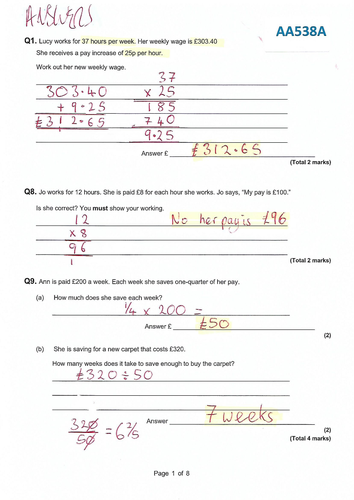 ANSWERS
AA538A
Q1. Lucy works for 37 hours per week. Her weekly wage is £303.40
She receives a pay increase of 25p per hour.
Work out her new weekly wage.
37
303.40 x 25
+ 9.25 185
£312.65 740
9.25
Answer £ £312.65
(Total 2 marks)
Q8. Jo works for 12 hours. She is paid £8 for each hour she works. Jo says, "My pay is £100."
Is she correct? You must show your working.
12 No her pay is £96
x 8
96
1
(Total 2 marks)
Q9. Ann is paid £200 a week. Each week she saves one-quarter of her pay.
(a) How much does she save each week?
1/4 x 200 =
Answer £ £50
(2)
(b) She is saving for a new carpet that costs £320.
How many weeks does it take to save enough to buy the carpet?
£320 ÷ 50
Answer 7 weeks
320/50 = 6 2/5
(2)
(Total 4 marks)
Page 1 of 8